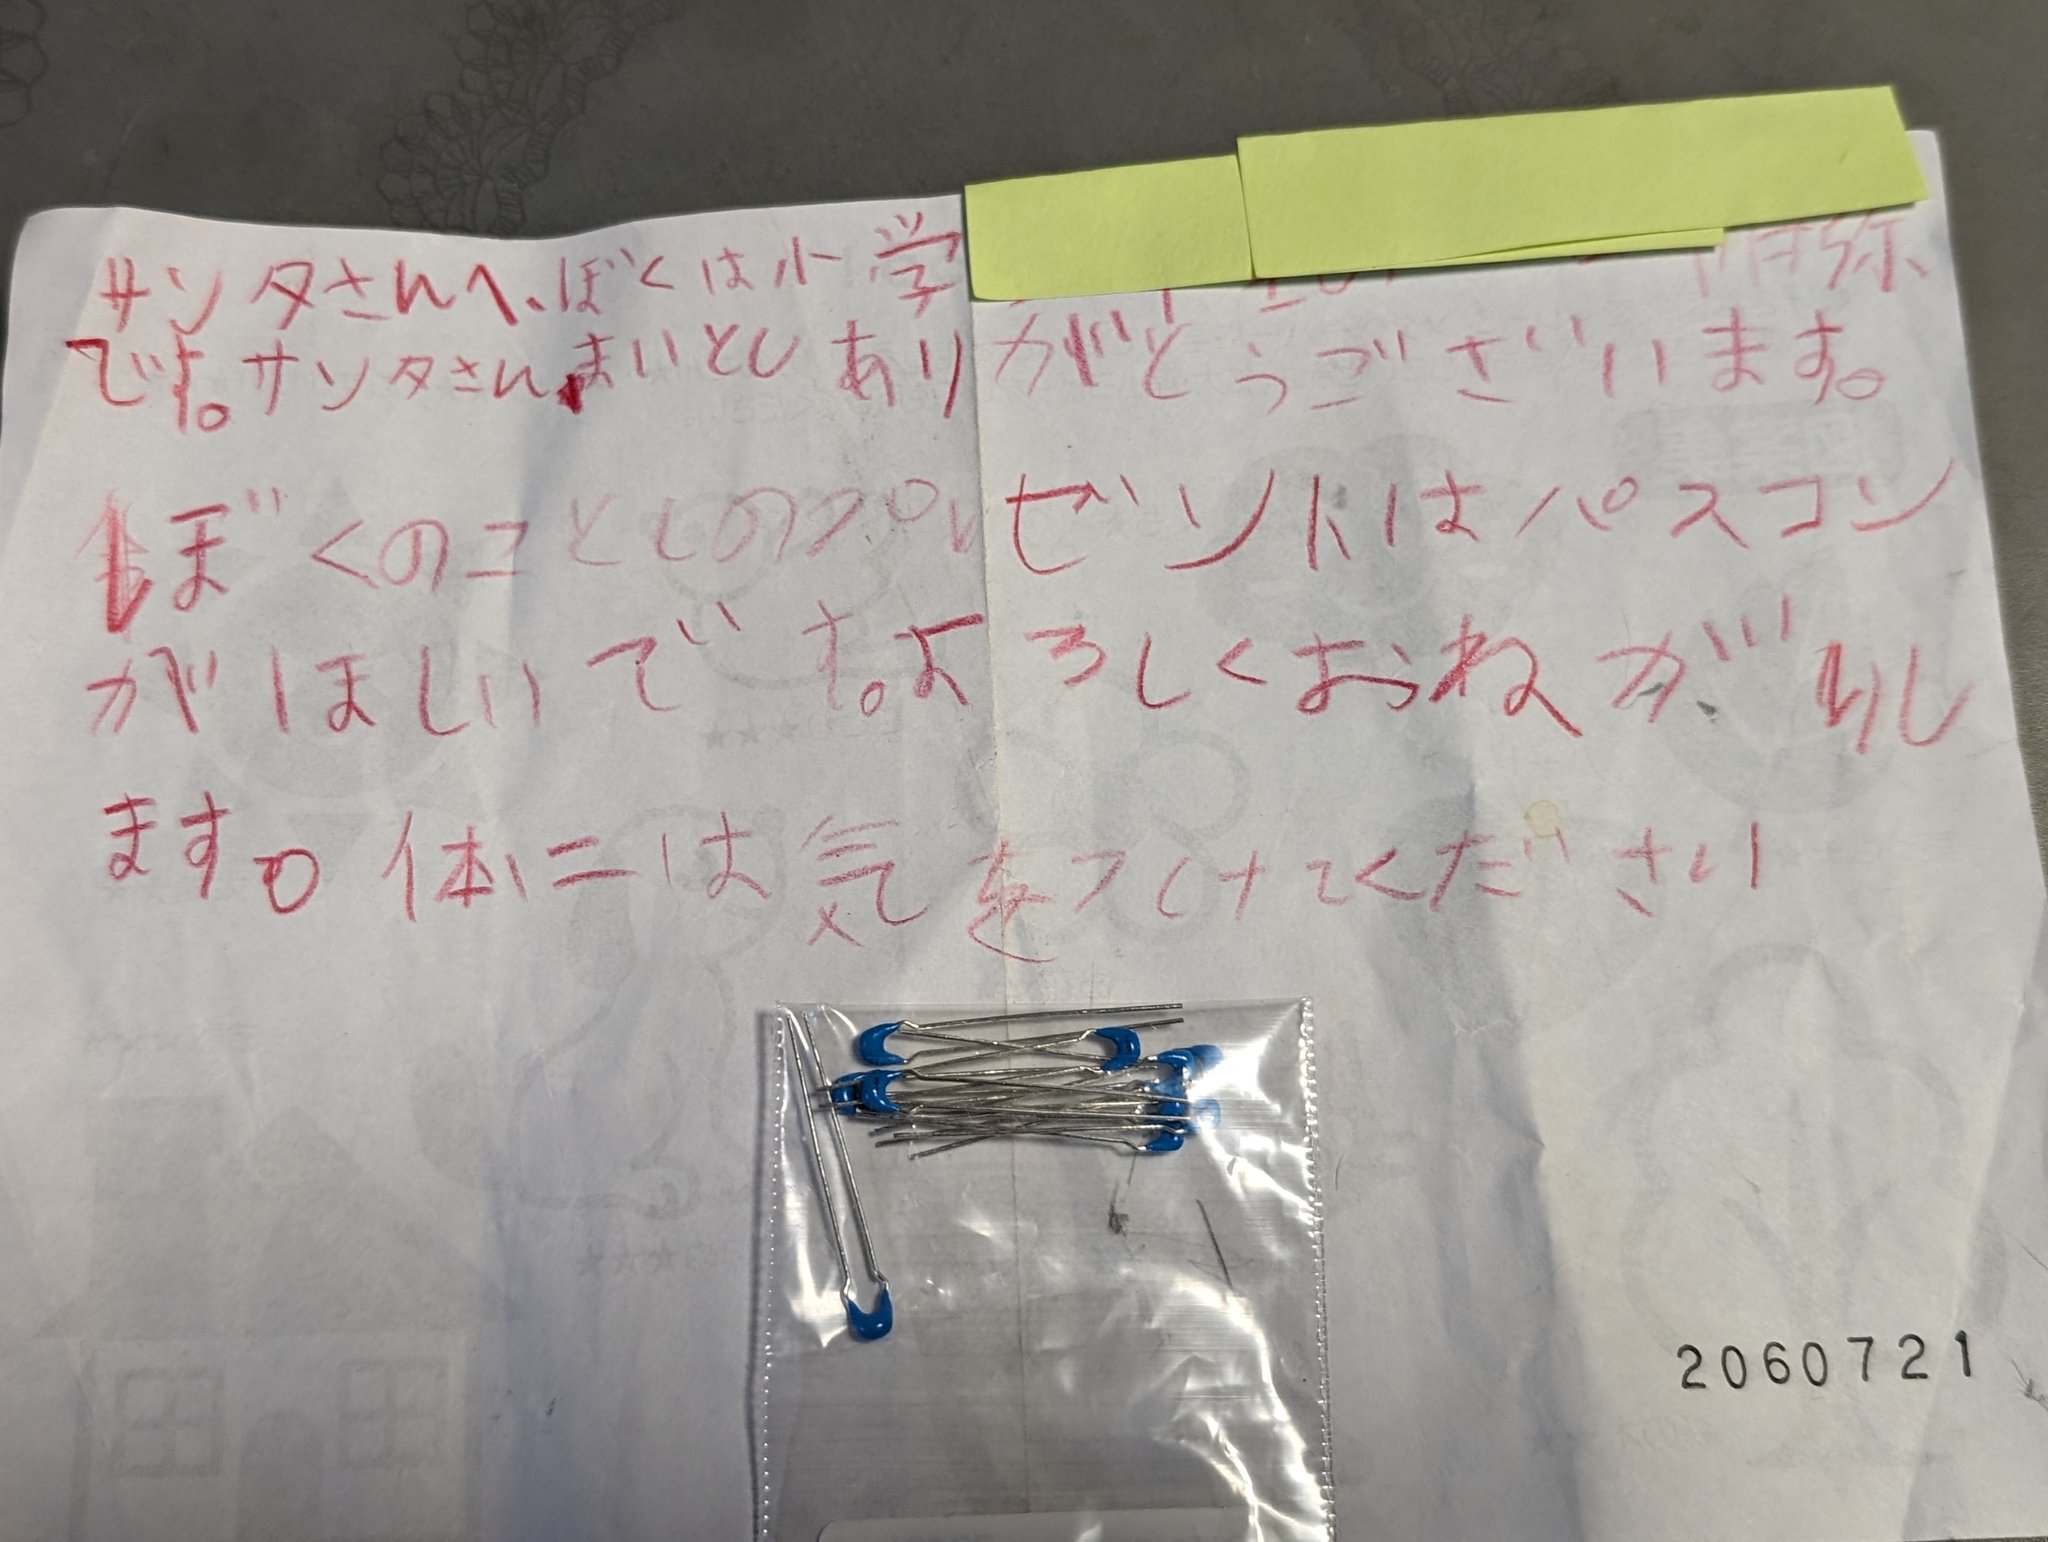 サンタさんへ、ぼくは小学
です。サンタさん、まいとしありがとうございます。
ぼくのことしのプレゼントはパスコン
がほしいです。よろしくおねがいし
ます。体には気をつけてください
2060721